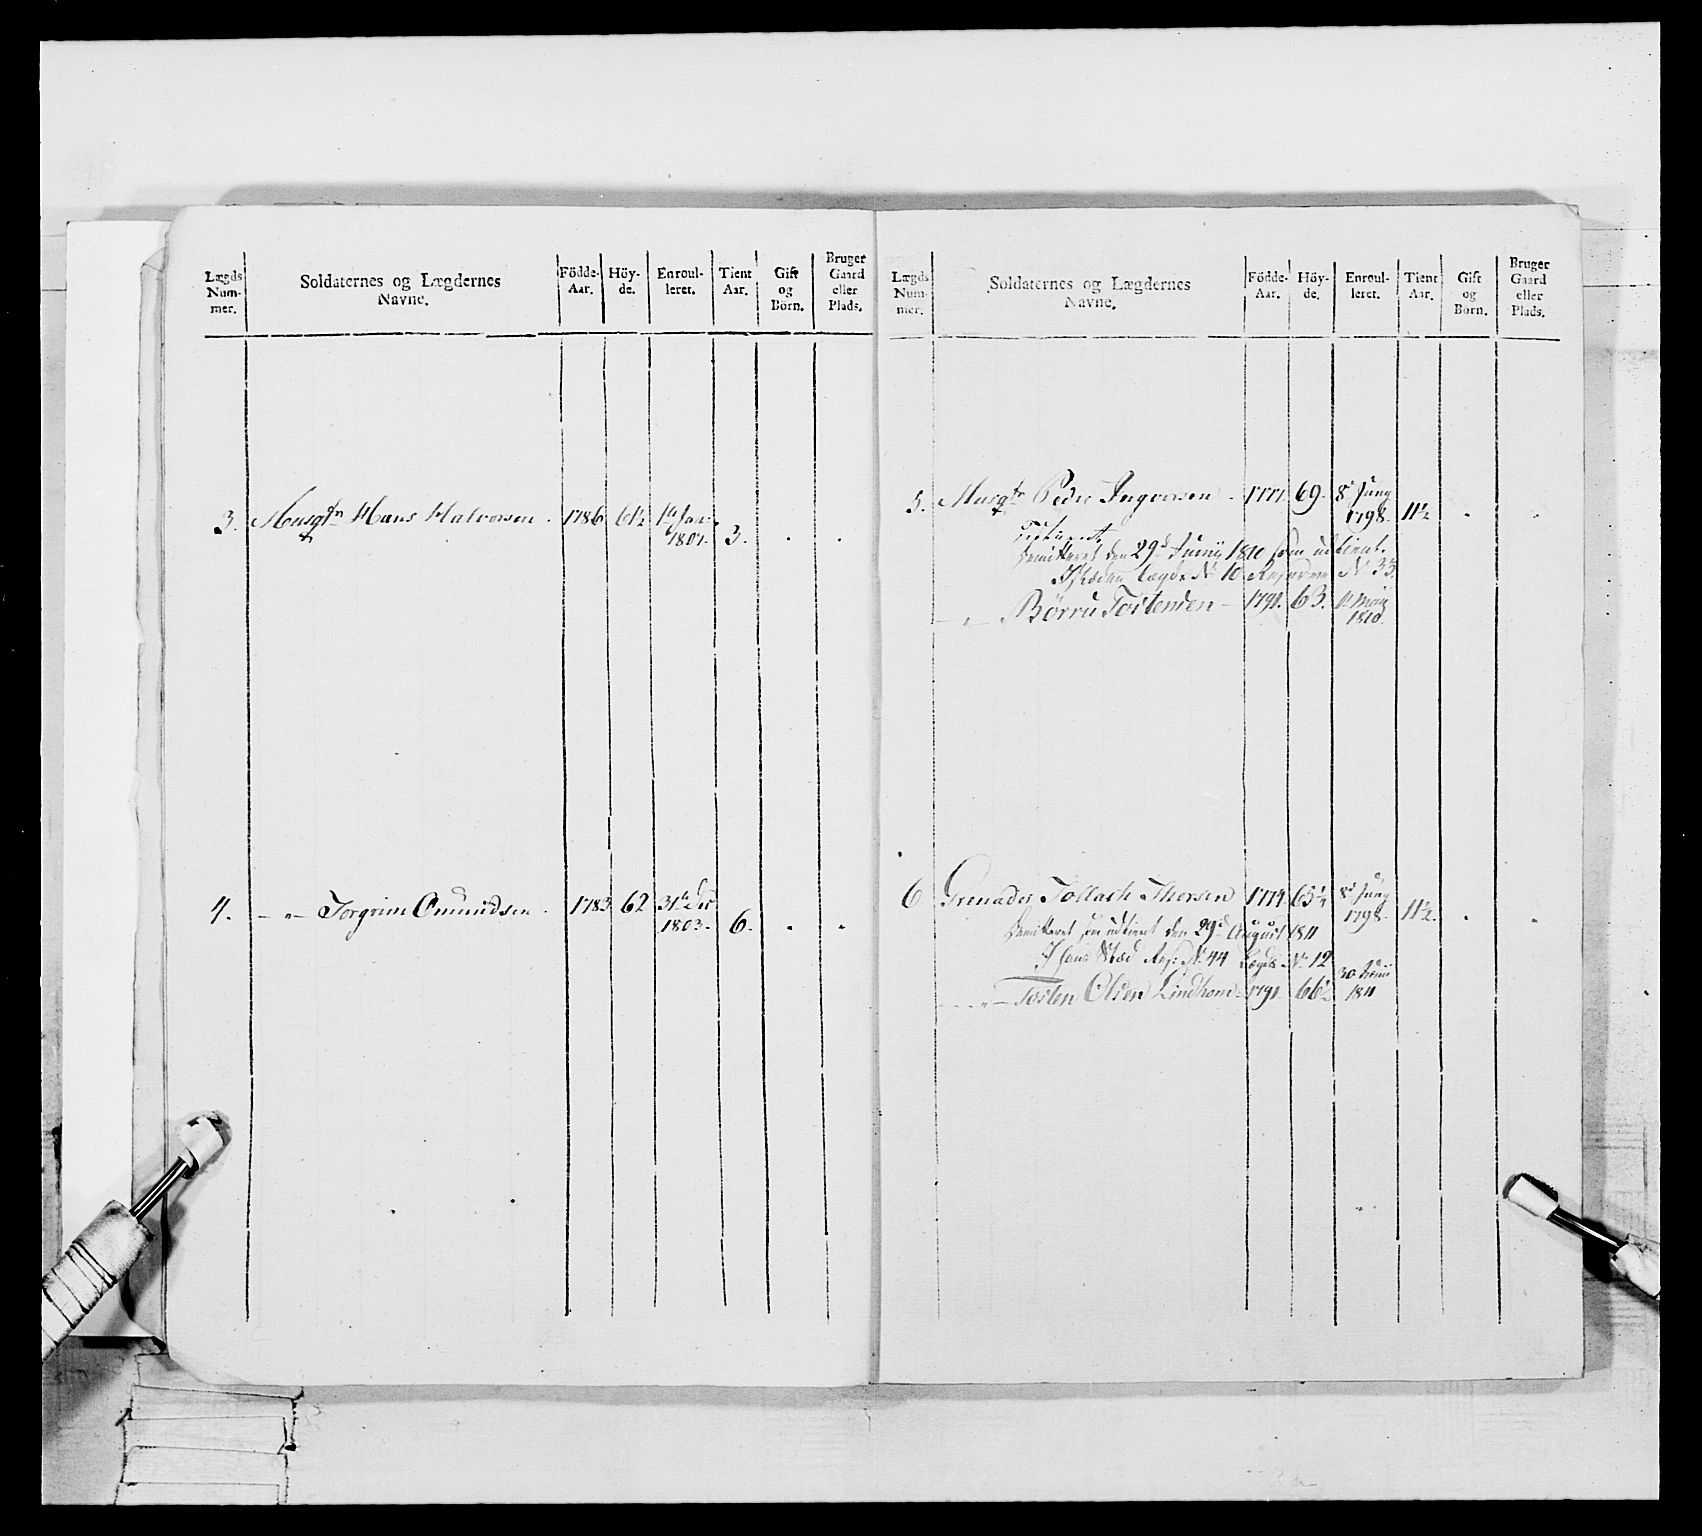 Lægds Num- mer.
Soldaternes og Lægdernes Navne.
Födde- Aar.
Höy- de.
Enroul- leret.
Tient Aar.
Gift og Börn.
Bruger Gaard eller Plads.
3. Musqtr Hans Halvorsen. 1786 61½ 1te Jan. 3. . .
1807.
4. — " — Torgrim Omundsen. 1783 62 31te Dec 6. . .
1803.
Lægds Num- mer.
Soldaternes og Lægdernes Navne.
Födde- Aar.
Höy- de.
Enroul- leret.
Tient Aar.
Gift og Börn.
Bruger Gaard eller Plads.
5. Musqtr Peder Ingversen - 1777. 69. 8de Juny 11½ . .
1798.
Demitteret den 29de Junii 1810 som udtient.
I Steden Lægds No 10 Reserven No 33
— " — Börru Tostensen — 1791. 63. Maii
1810.
6 Grenader Tollach Thorsen 1774. 65¼ 8de Juny 11½. . .
1798.
Demitteret som udtient den 29de August 1811
I hans Stæd Res: No 44 Lægds No 12
— " — Tosten Olsen Lindhom 1791 66½ 30
1811